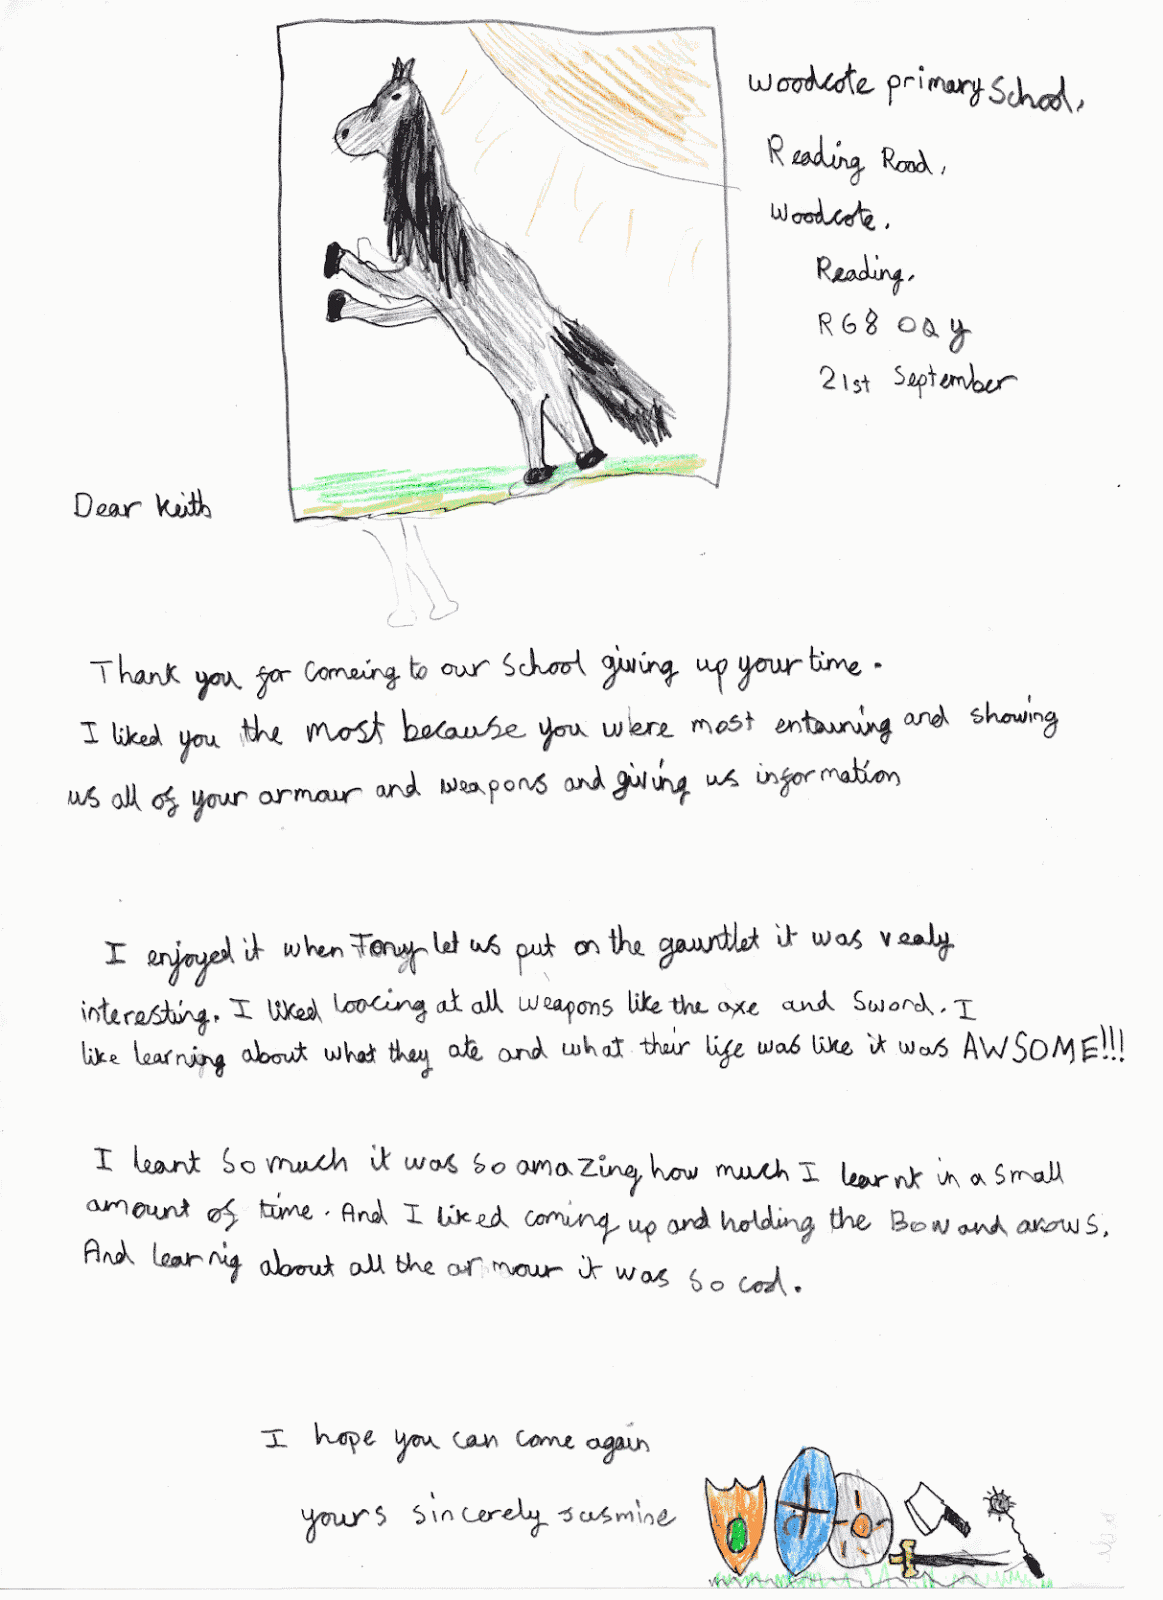 Woodcote primary School,
Reading Road,
Woodcote,
Reading,
RG8 0QY
21st September
Dear Keith
Thank you for comeing to our School giving up your time.
I liked you the most because you were most entaining and showing
us all of your armour and weapons and giving us information
I enjoyed it when Tony let us put on the gauntlet it was realy
interesting. I liked loocing at all weapons like the axe and Sword. I
like learning about what they ate and what their life was like it was AWSOME!!!
I leant So much it was so amazing how much I learnt in a small
amount of time. And I liked coming up and holding the Bow and arows.
And learnig about all the armour it was so cool.
I hope you can come again
yours sincerely Jasmine